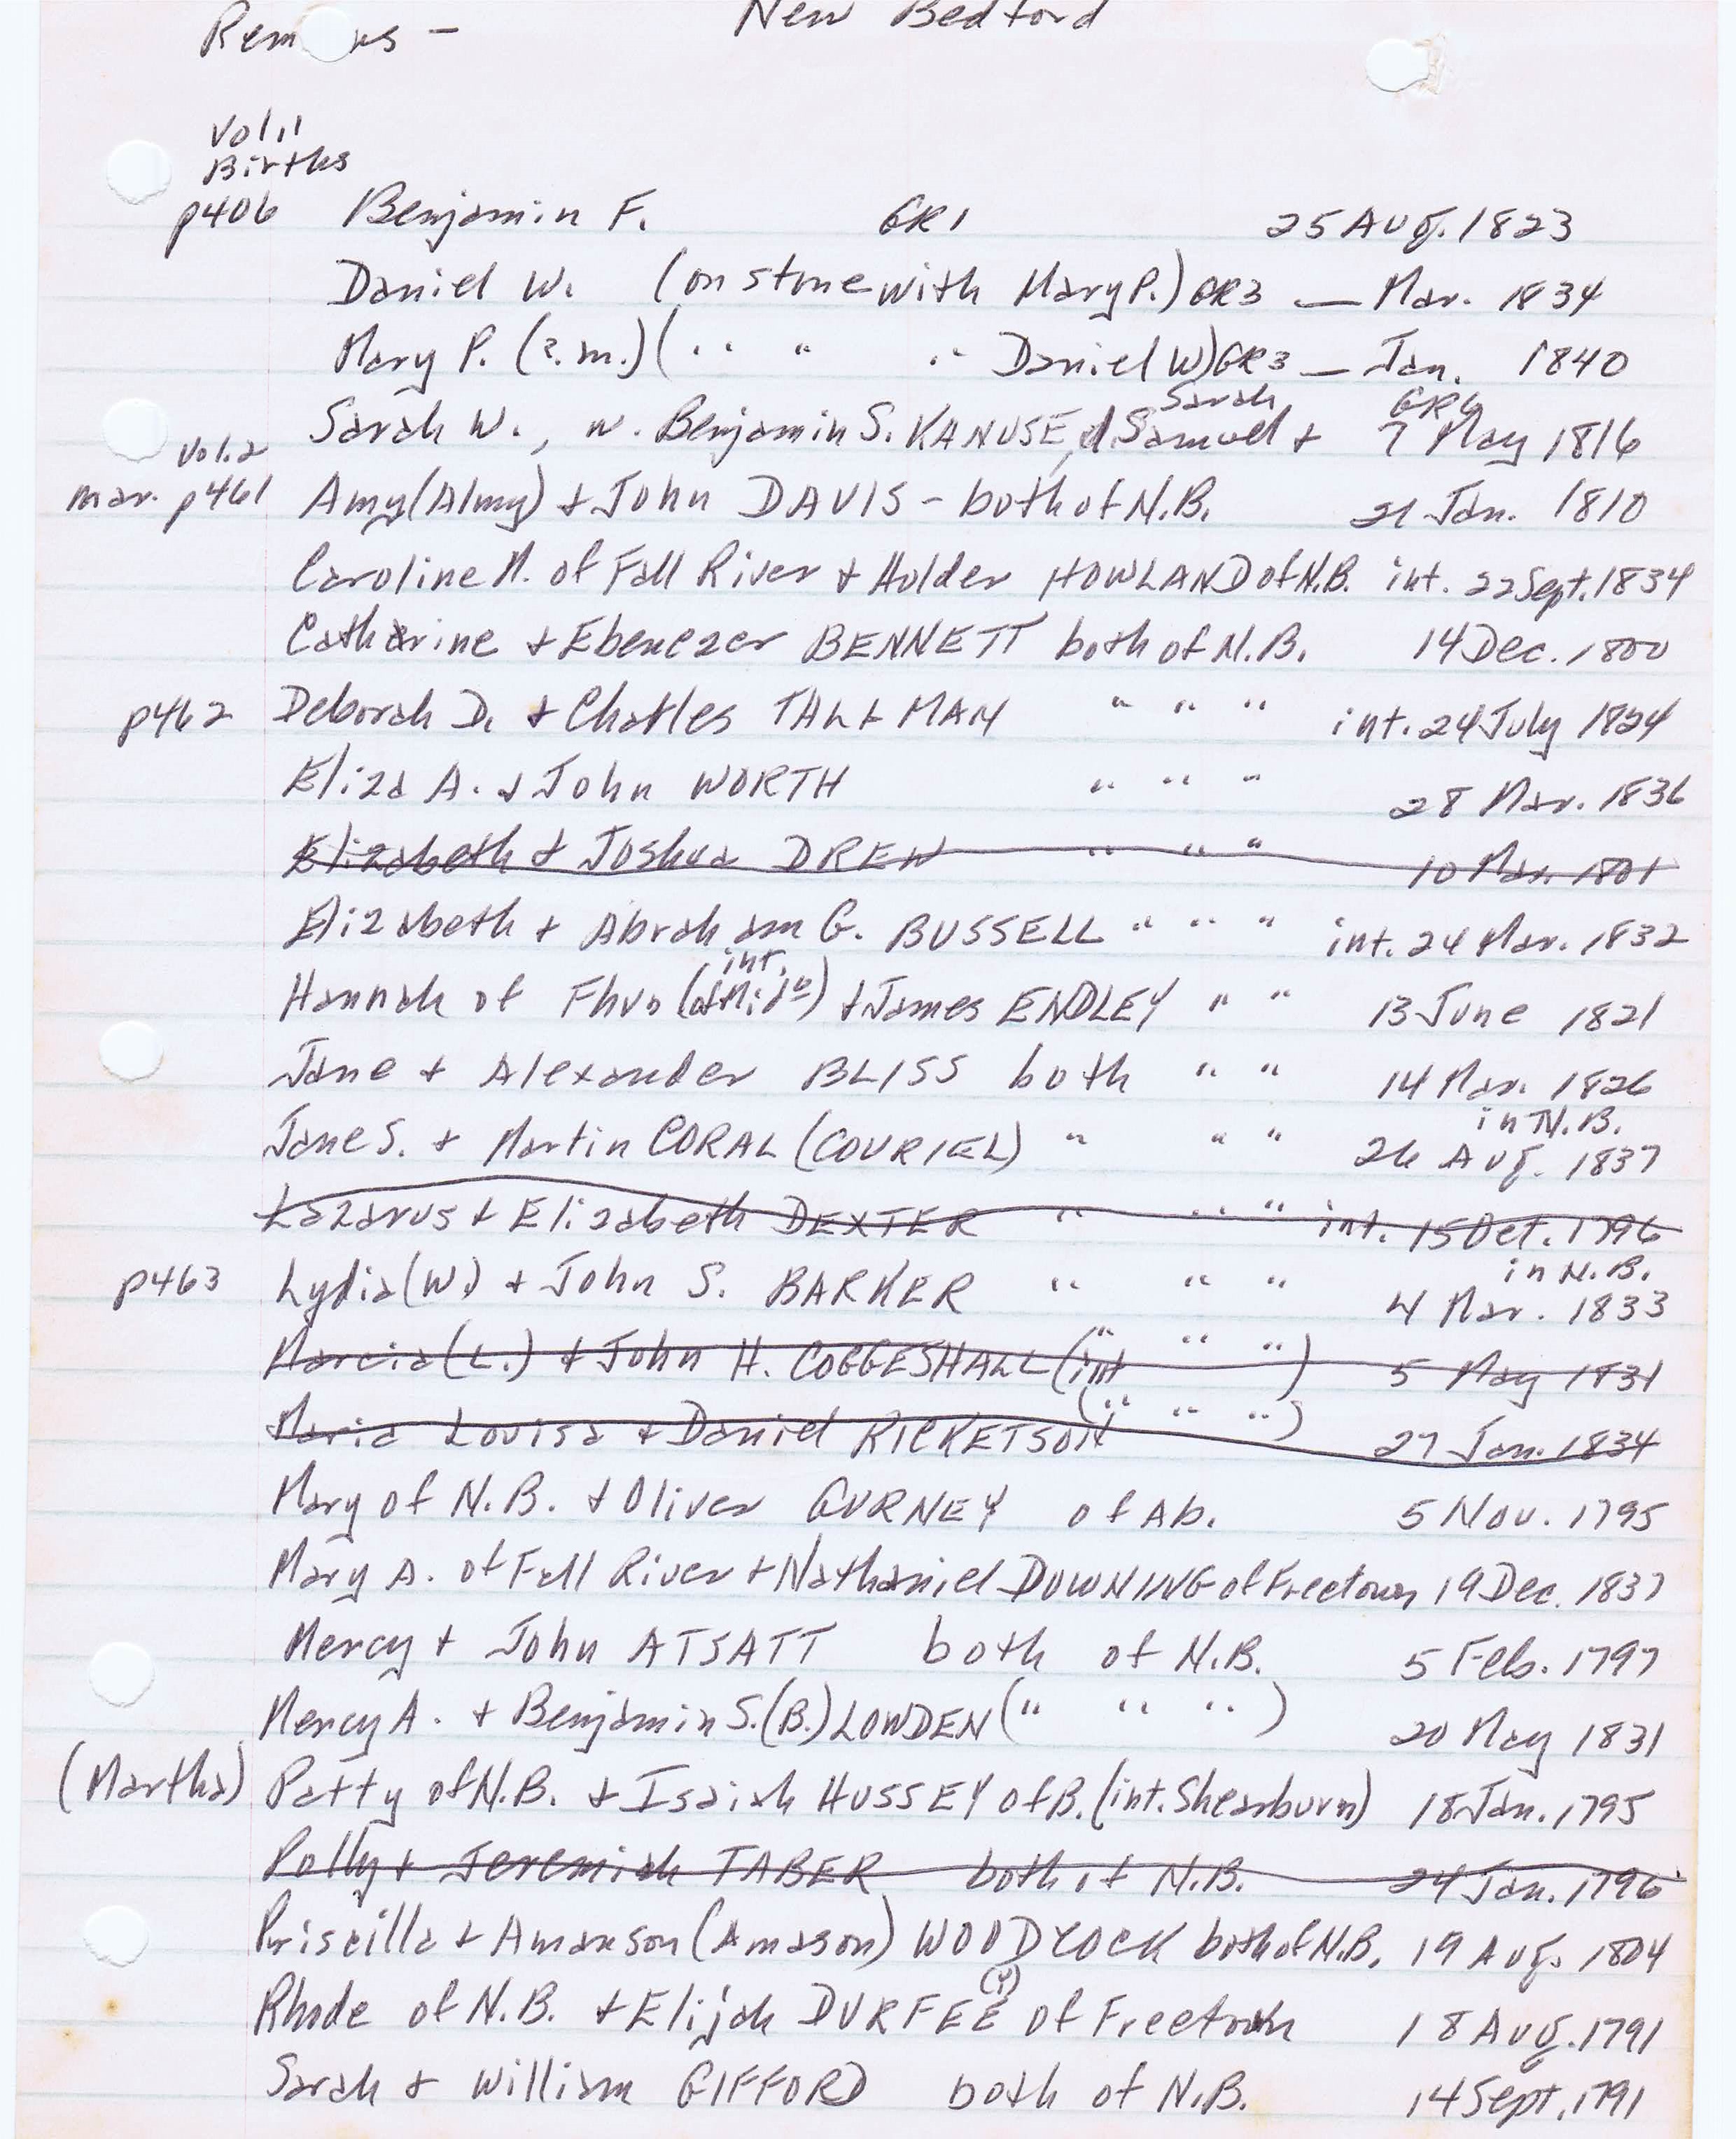 New Bedford
Rem   us -
Vol. 1
Births
p406 Benjamin F. GR1 25 Aug. 1823
Daniel W. (on stone with Mary P.) GR3 — Mar. 1834
Mary P. (?.m.) ( " " " Daniel W) GR3 — Jan. 1840
Sarah GR6
Sarah W., w. Benjamin S. KANUSE, d. Samuel + 7 May 1816
Vol. 2
mar. p461 Amy (Almy) + John DAVIS - both of N.B. 21 Jan. 1810
Caroline M. of Fall River + Holder HOWLAND of N.B. int. 22 Sept. 1834
Catharine + Ebenezer BENNETT both of N.B. 14 Dec. 1800
p462 Deborah D. + Charles TALLMAN " " " int. 24 July 1824
Eliza A. + John WORTH " " " 28 Mar. 1836
Elizabeth + Joshua DREW " " " 10 Mar. 1801
Elizabeth + Abraham G. BUSSELL " " " int. 24 Mar. 1832
int.
Hannah of Fhvn (of Mido) + James ENDLEY " " 13 June 1821
Jane + Alexander BLISS both " " 14 Mar. 1826
in N.B.
Jane S. + Martin CORAL (COURIEL) " " " 26 Aug. 1837
Lazarus + Elizabeth DEXTER " " " int. 15 Oct. 1796
in N.B.
p463 Lydia (W.) + John S. BARKER " " " 4 Mar. 1833
Marcia (L.) + John H. COGGESHALL (int " " ") 5 May 1831
Maria Louisa + Daniel RICKETSON (" " ") 27 Jan. 1834
Mary of N.B. + Oliver GURNEY of Ab. 5 Nov. 1795
Mary A. of Fall River + Nathaniel DOWNING of Freetown 19 Dec. 1837
Mercy + John ATSATT both of N.B. 5 Feb. 1797
Mercy A. + Benjamin S. (B.) LOWDEN (" " ") 20 May 1831
(Martha) Patty of N.B. + Isaiah HUSSEY of B. (int. Shearburn) 18 Jan. 1795
Polly + Jeremiah TABER both of N.B. 24 Jan. 1796
Priscilla + Amanson (Amason) WOODCOCK both of N.B. 19 Aug. 1804
(Y)
Rhode of N.B. + Elijah DURFEE of Freetown 18 Aug. 1791
Sarah + William GIFFORD both of N.B. 14 Sept. 1791